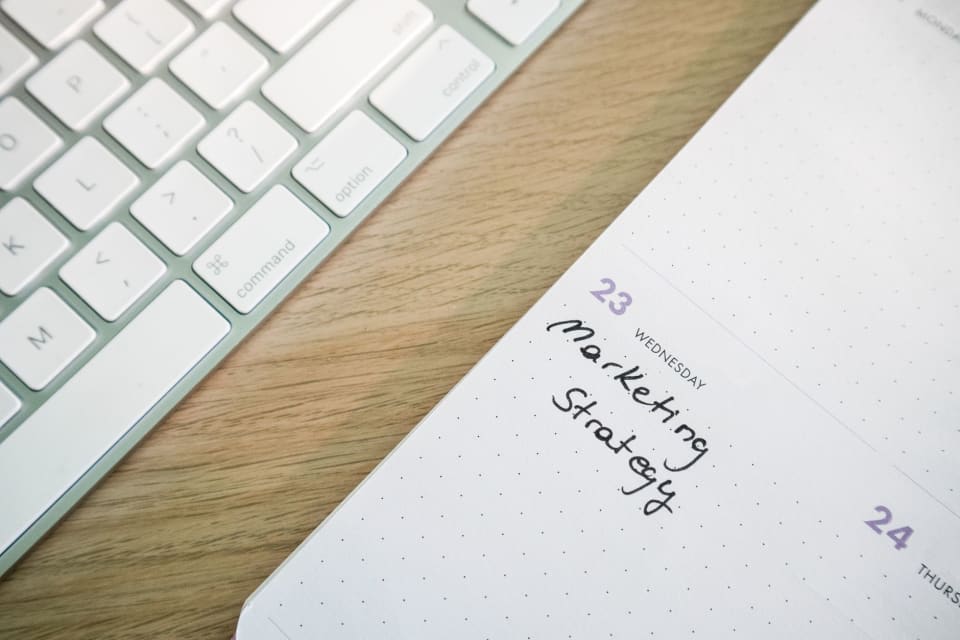 shift
control
P
O
? /
option
L
> .
⌘ command
K
< ,
M
23 WEDNESDAY
Marketing
Strategy
24